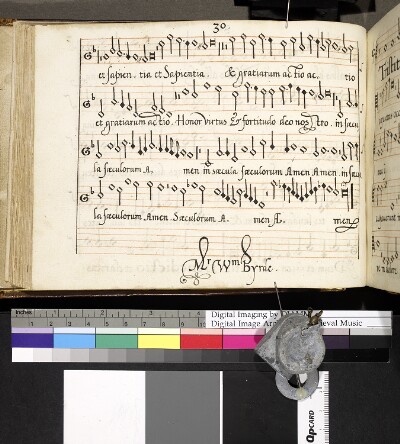 30.
et sapien. tia et Sapientia. & gratiarum actio ac. tio
et gratiarum actio. Honor virtus & fortitudo deo nostro. in sæcu
la sæculorum A. men in sæcula sæculorum Amen Amen. in sæcu
la sæculorum Amen. Sæculorum A. men Æ. men
Mr Wm Byrde.
Inches 1 2
Digital Imaging by DIAMM
Digital Image Medieval Music
QPCARD